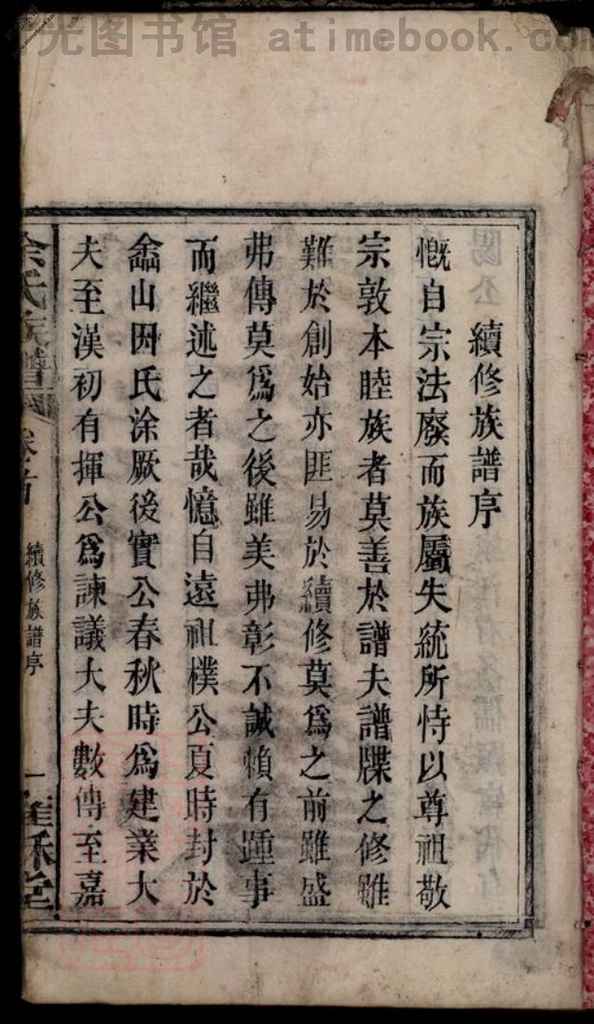 光图书馆 atimebook.co
續修族譜序
慨自宗法廢而族屬失統所恃以尊祖敬
宗敦本睦族者莫善於譜夫譜牒之修雖
難於創始亦匪易於續修莫爲之前雖盛
弗傳莫爲之後雖美弗彰不誠賴有踵事
而繼述之者哉憶自遠祖樸公夏時封於
嵞山因氏涂厥後實公春秋時爲建業大
夫至漢初有揮公爲諫議大夫數傳至嘉
氏族譜
卷首
續修族譜序
一
堂